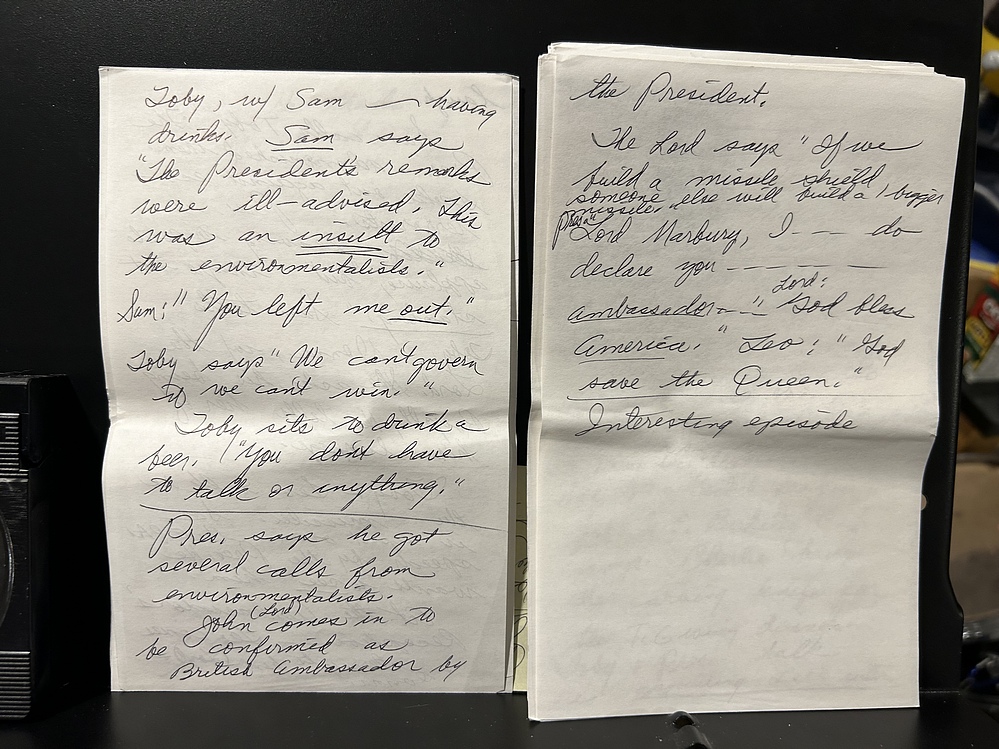 Toby, w/ Sam — having
drinks. Sam says
"The President's remarks
were ill-advised, this
was an insult to
the environmentalists."
Sam: "You left me out."
Toby says "We can't govern
if we can't win."
Toby sits to drink a
beer. "You don't have
to talk or anything."
Pres. says he got
several calls from
environmentalists.
John (Lord) comes in to
be confirmed as
British Ambassador by
the President.
The Lord says "If we
build a missile shield,
someone else will build a bigger
missile."
Pres: "Lord Marbury, I -- do
declare you ------
ambassador--" Lord:
"God bless
America." Leo: "God
save the Queen."
Interesting episode